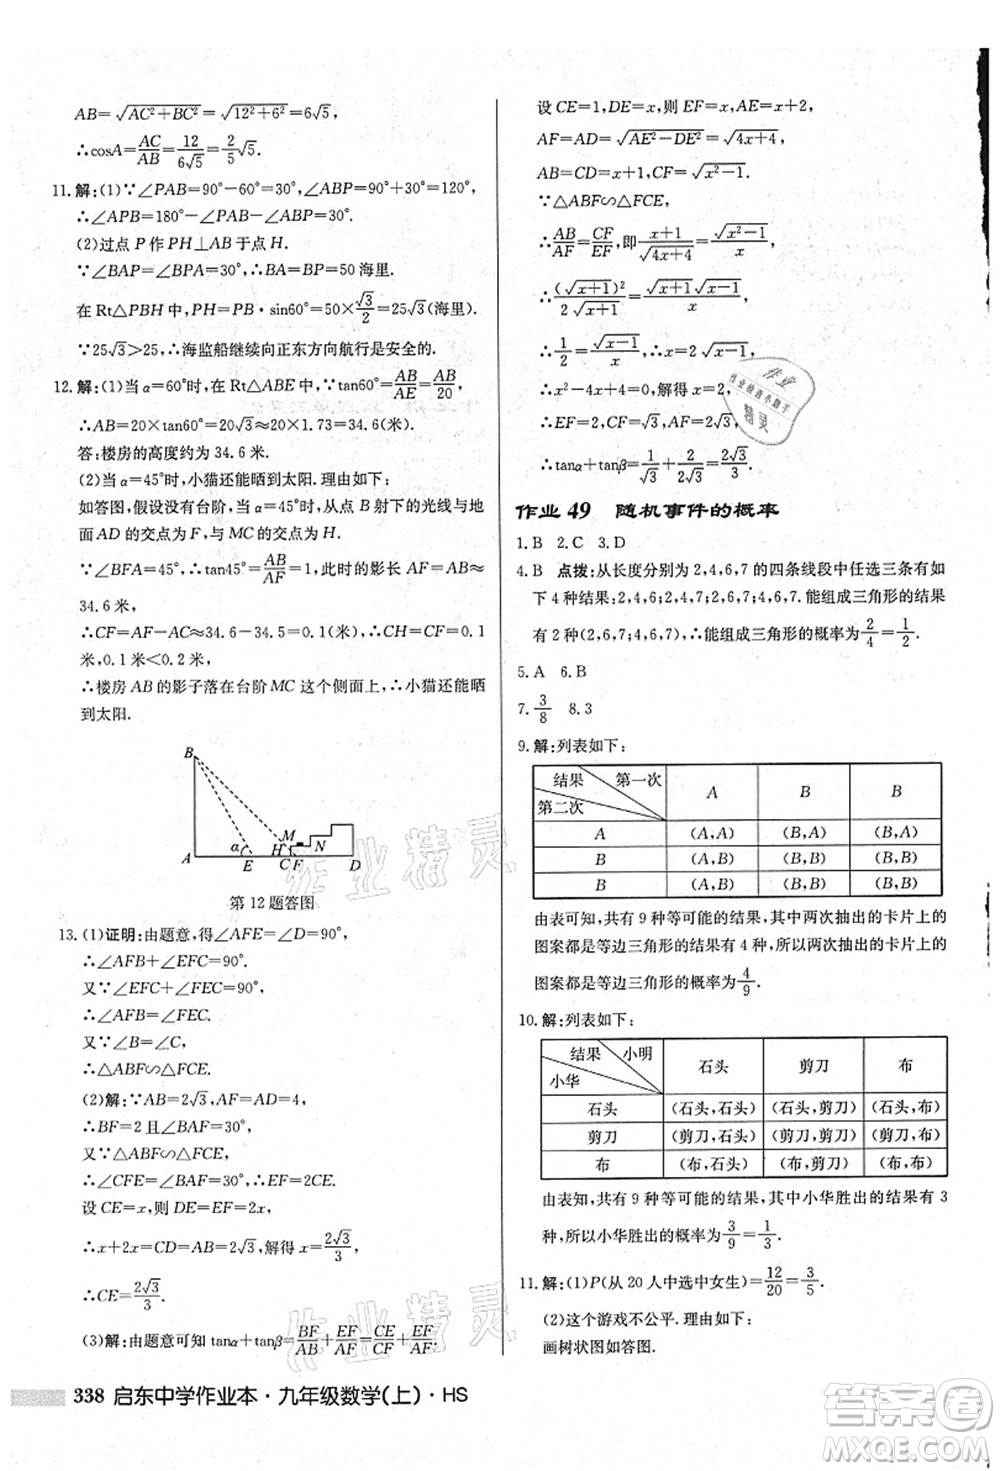 AB=√(AC²+BC²)=√(12²+6²)=6√5,
∴cosA=AC/AB=12/(6√5)=(2/5)√5.
11.解:(1)∵∠PAB=90°-60°=30°,∠ABP=90°+30°=120°,
∴∠APB=180°-∠PAB-∠ABP=30°.
(2)过点 P 作 PH⊥AB于点 H.
∵∠BAP=∠BPA=30°,∴BA=BP=50 海里.
在 Rt△PBH 中,PH=PB·sin60°=50×√3/2=25√3(海里).
∵25√3>25,∴海监船继续向正东方向航行是安全的.
12.解:(1)当 α=60°时,在 Rt△ABE 中,∵tan60°=AB/AE=AB/20,
∴AB=20×tan60°=20√3≈20×1.73=34.6(米).
答:楼房的高度约为 34.6 米.
(2)当 α=45°时,小猫还能晒到太阳.理由:
如答图,假设没有台阶,当α=45°时,从点 B 射下的光线与地
面 AD 的交点为 F,与 MC 的交点为 H.
∵∠BFA=45°,∴tan45°=AB/AF=1,此时的影长 AF=AB≈
34.6 米.
∴CF=AF-AC≈34.6-34.5=0.1(米),∴CH=CF=0.1
米,0.1 米<0.2 米.
∴楼房 AB 的影子落在台阶 MC 这个侧面上,∴小猫还能晒
到太阳.
B
α
M
H
N
A
E
C
F
D
第 12 题答图
13.(1)证明:由题意,得∠AFE=∠D=90°,
∴∠AFB+∠EFC=90°.
又∵∠EFC+∠FEC=90°,
∴∠AFB=∠FEC.
又∵∠B=∠C,
∴△ABF∽△FCE.
(2)解:∵AB=2√3,AF=AD=4,
∴BF=2 且∠BAF=30°.
又∵△ABF∽△FCE,
∴∠CFE=∠BAF=30°.
设 CE=x,则 DE=EF=2x,
∴x+2x=CD=AB=2√3,解得 x=2√3/3,
∴CE=2√3/3.
(3)解:由题意可知 tanα+tanβ=BF/AB+EF/AF=CE/CF+EF/AF.
338 启东中学作业本·九年级数学(上)·HS
设 CE=1,DE=x,则 EF=x,AB=x+2,
AF=AD=√(AE²-DE²)=√(4x+4),
AB=CD=x+1,CF=√(x²-1).
∵△ABF∽△FCE,
∴AB/AF=CF/EF,即(x+1)/√(4x+4)=√(x²-1)/x,
∴(√(x+1))²/(2√(x+1))=√(x+1)·√(x-1)/x,
∴1/2=√(x-1)/x,
∴x²-4x+4=0,解得 x=2,
∴CF=√3,EF=2,AF=2√3,
∴tanα+tanβ=1/√3+2/(2√3)=2√3/3.
作业 49 随机事件的概率
1.B 2.C 3.D
4.B 点拨:从长度分别为 2,4,6,7 的四条线段中任选三条有如
下 4 种结果:2,4,6;2,4,7;2,6,7;4,6,7.能组成三角形的结果
有 2 种(2,6,7;4,6,7),∴能组成三角形的概率为2/4=1/2.
5.A 6.B
7.3/8 8.3
9.解:列表如下:
结果 第一次 A B B
第二次
A (A,A) (B,A) (B,A)
B (A,B) (B,B) (B,B)
B (A,B) (B,B) (B,B)
由表可知,共有 9 种等可能的结果,其中两次抽出的卡片上的
图案都是等边三角形的结果有 4 种,所以两次抽出的卡片上的
图案都是等边三角形的概率为4/9.
10.解:列表如下:
结果 小明 石头 剪刀 布
小华
石头 (石头,石头) (石头,剪刀) (石头,布)
剪刀 (剪刀,石头) (剪刀,剪刀) (剪刀,布)
布 (布,石头) (布,剪刀) (布,布)
由表知,共有 9 种等可能的结果,其中小华胜出的结果有 3
种,所以小华胜出的概率为3/9=1/3.
11.解:(1)P(从 20 人中选中女生)=12/20=3/5.
(2)这个游戏不公平.理由如下:
画树状图如答图.
作业精灵
作业精灵
作业
作业检查小助手
精灵
答案圈
MXQE.COM